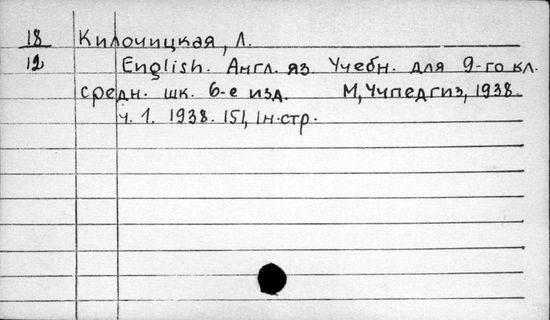 18 Килочицкая, Л.
12 English. Англ. яз. Учебн. для 9-го кл.
средн. шк. 6-е изд. М, Учпедгиз, 1938.
ч. 1. 1938. 151, 1н.стр.